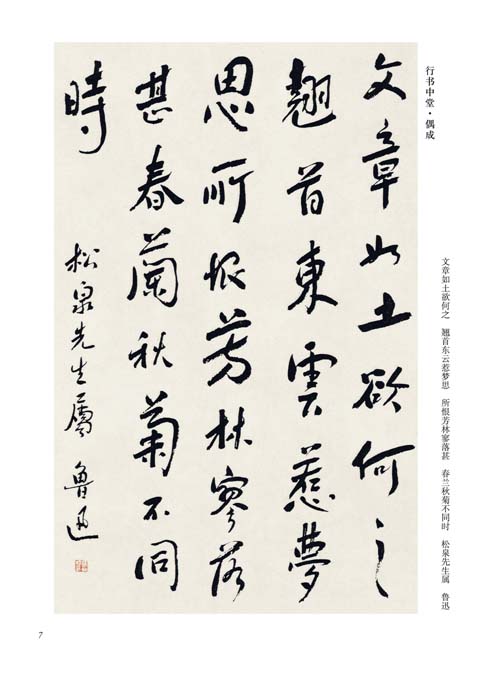 行书中堂·偶成
文章如土欲何之 翘首东云惹梦思 所恨芳林寥落甚 春兰秋菊不同时 松泉先生属 鲁迅
文章如土欲何之
翹首東雲惹夢
思所恨芳林寥落
甚春蘭秋菊不同
時
松泉先生屬 魯迅
7